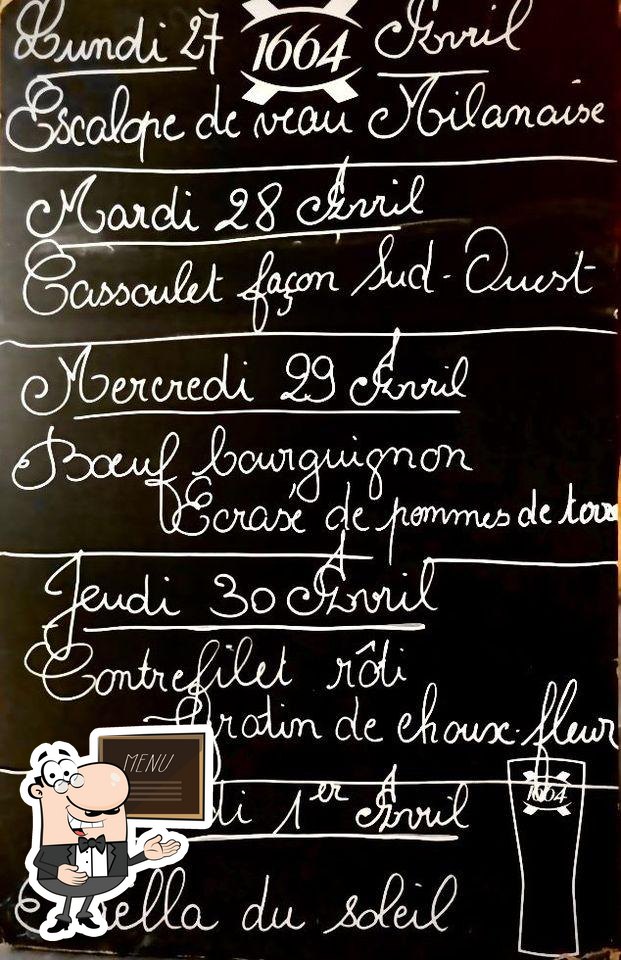 Lundi 27 1664 Avril
Escalope de veau Milanaise
Mardi 28 Avril
Cassoulet façon Sud-Ouest
Mercredi 29 Avril
Bœuf bourguignon
Ecrasé de pommes de terre
Jeudi 30 Avril
Contrefilet rôti
Gratin de choux-fleur
MENU
di 1er Avril
1664
du soleil